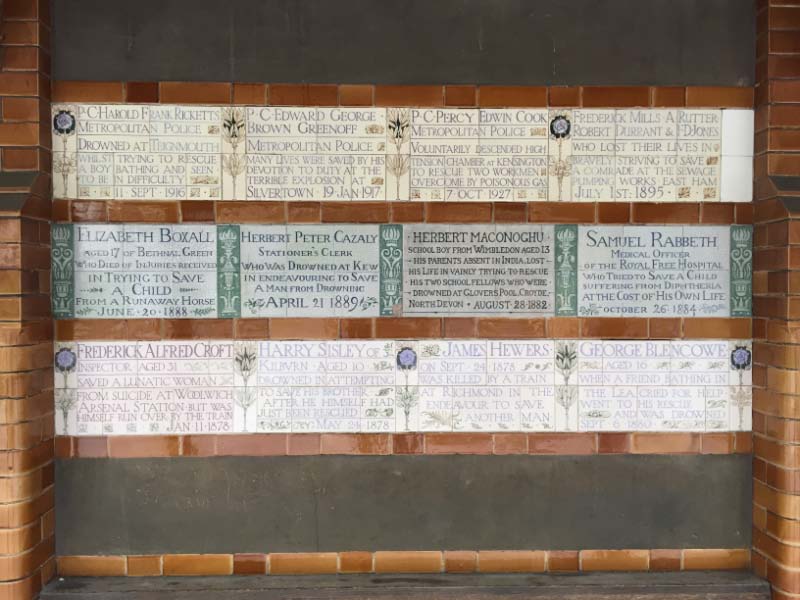 P·C·HAROLD FRANK RICKETTS
METROPOLITAN POLICE
DROWNED AT TEIGNMOUTH
WHILST TRYING TO RESCUE
A BOY BATHING AND SEEN
TO BE IN DIFFICULTY
11·SEPT·1916
P·C·EDWARD GEORGE·
BROWN GREENOFF
METROPOLITAN POLICE
MANY LIVES WERE SAVED BY HIS
DEVOTION TO DUTY AT THE
TERRIBLE EXPLOSION AT
SILVERTOWN·19·JAN·1917
P·C·PERCY EDWIN COOK
METROPOLITAN POLICE
VOLUNTARILY DESCENDED HIGH
TENSION CHAMBER AT KENSINGTON
TO RESCUE TWO WORKMEN
OVERCOME BY POISONOUS GAS
7·OCT·1927
FREDERICK MILLS·A·RUTTER
ROBERT DURRANT & F·D·JONES
WHO LOST THEIR LIVES IN
BRAVELY STRIVING TO SAVE
A COMRADE AT THE SEWAGE
PUMPING WORKS EAST HAM
JULY 1ST·1895
ELIZABETH BOXALL
AGED 17 OF BETHNAL GREEN
WHO DIED OF INJURIES RECEIVED
IN TRYING TO SAVE
A CHILD
FROM A RUNAWAY HORSE
JUNE·20·1888
HERBERT PETER CAZALY
STATIONER'S CLERK
WHO WAS DROWNED AT KEW
IN ENDEAVOURING TO SAVE
A MAN FROM DROWNING
APRIL 21 1889
HERBERT MACONOGHU
SCHOOL BOY FROM WIMBLEDON AGED 13
HIS PARENTS ABSENT IN INDIA, LOST
HIS LIFE IN VAINLY TRYING TO RESCUE
HIS TWO SCHOOL FELLOWS WHO WERE
DROWNED AT GLOVERS POOL, CROYDE,
NORTH DEVON · AUGUST·28·1882
SAMUEL RABBETH
MEDICAL OFFICER
OF THE ROYAL FREE HOSPITAL
WHO TRIED TO SAVE A CHILD
SUFFERING FROM DIPHTHERIA
AT THE COST OF HIS OWN LIFE
OCTOBER·26·1884
FREDERICK ALFRED CROFT
INSPECTOR AGED 31
SAVED A LUNATIC WOMAN
FROM SUICIDE AT WOOLWICH
ARSENAL STATION·BUT WAS
HIMSELF RUN OVER BY THE TRAIN
JAN·11·1878
HARRY SISLEY OF
KILBURN·AGED·10
DROWNED IN ATTEMPTING
TO SAVE HIS BROTHER
AFTER HE HIMSELF HAD
JUST BEEN RESCUED
MAY·24·1878
JAMES HEWERS
ON SEPT·24·1878
WAS KILLED BY A TRAIN
AT RICHMOND IN THE
ENDEAVOUR TO SAVE
ANOTHER MAN
GEORGE BLENCOWE
AGED 16
WHEN A FRIEND BATHING IN
THE LEA CRIED FOR HELP
WENT TO HIS RESCUE
AND WAS DROWNED
SEPT·6·1880